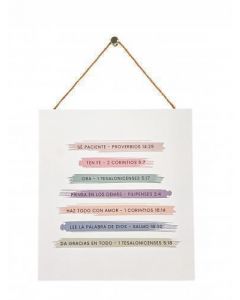 SÉ PACIENTE - PROVERBIOS 14:29
TEN FE - 2 CORINTIOS 5:7
ORA - 1 TESALONICENSES 5:17
PIENSA EN LOS DEMÁS - FILIPENSES 2:4
HAZ TODO CON AMOR - 1 CORINTIOS 16:14
LEE LA PALABRA DE DIOS - SALMOS 119:30
DA GRACIAS EN TODO - 1 TESALONICENSES 5:18